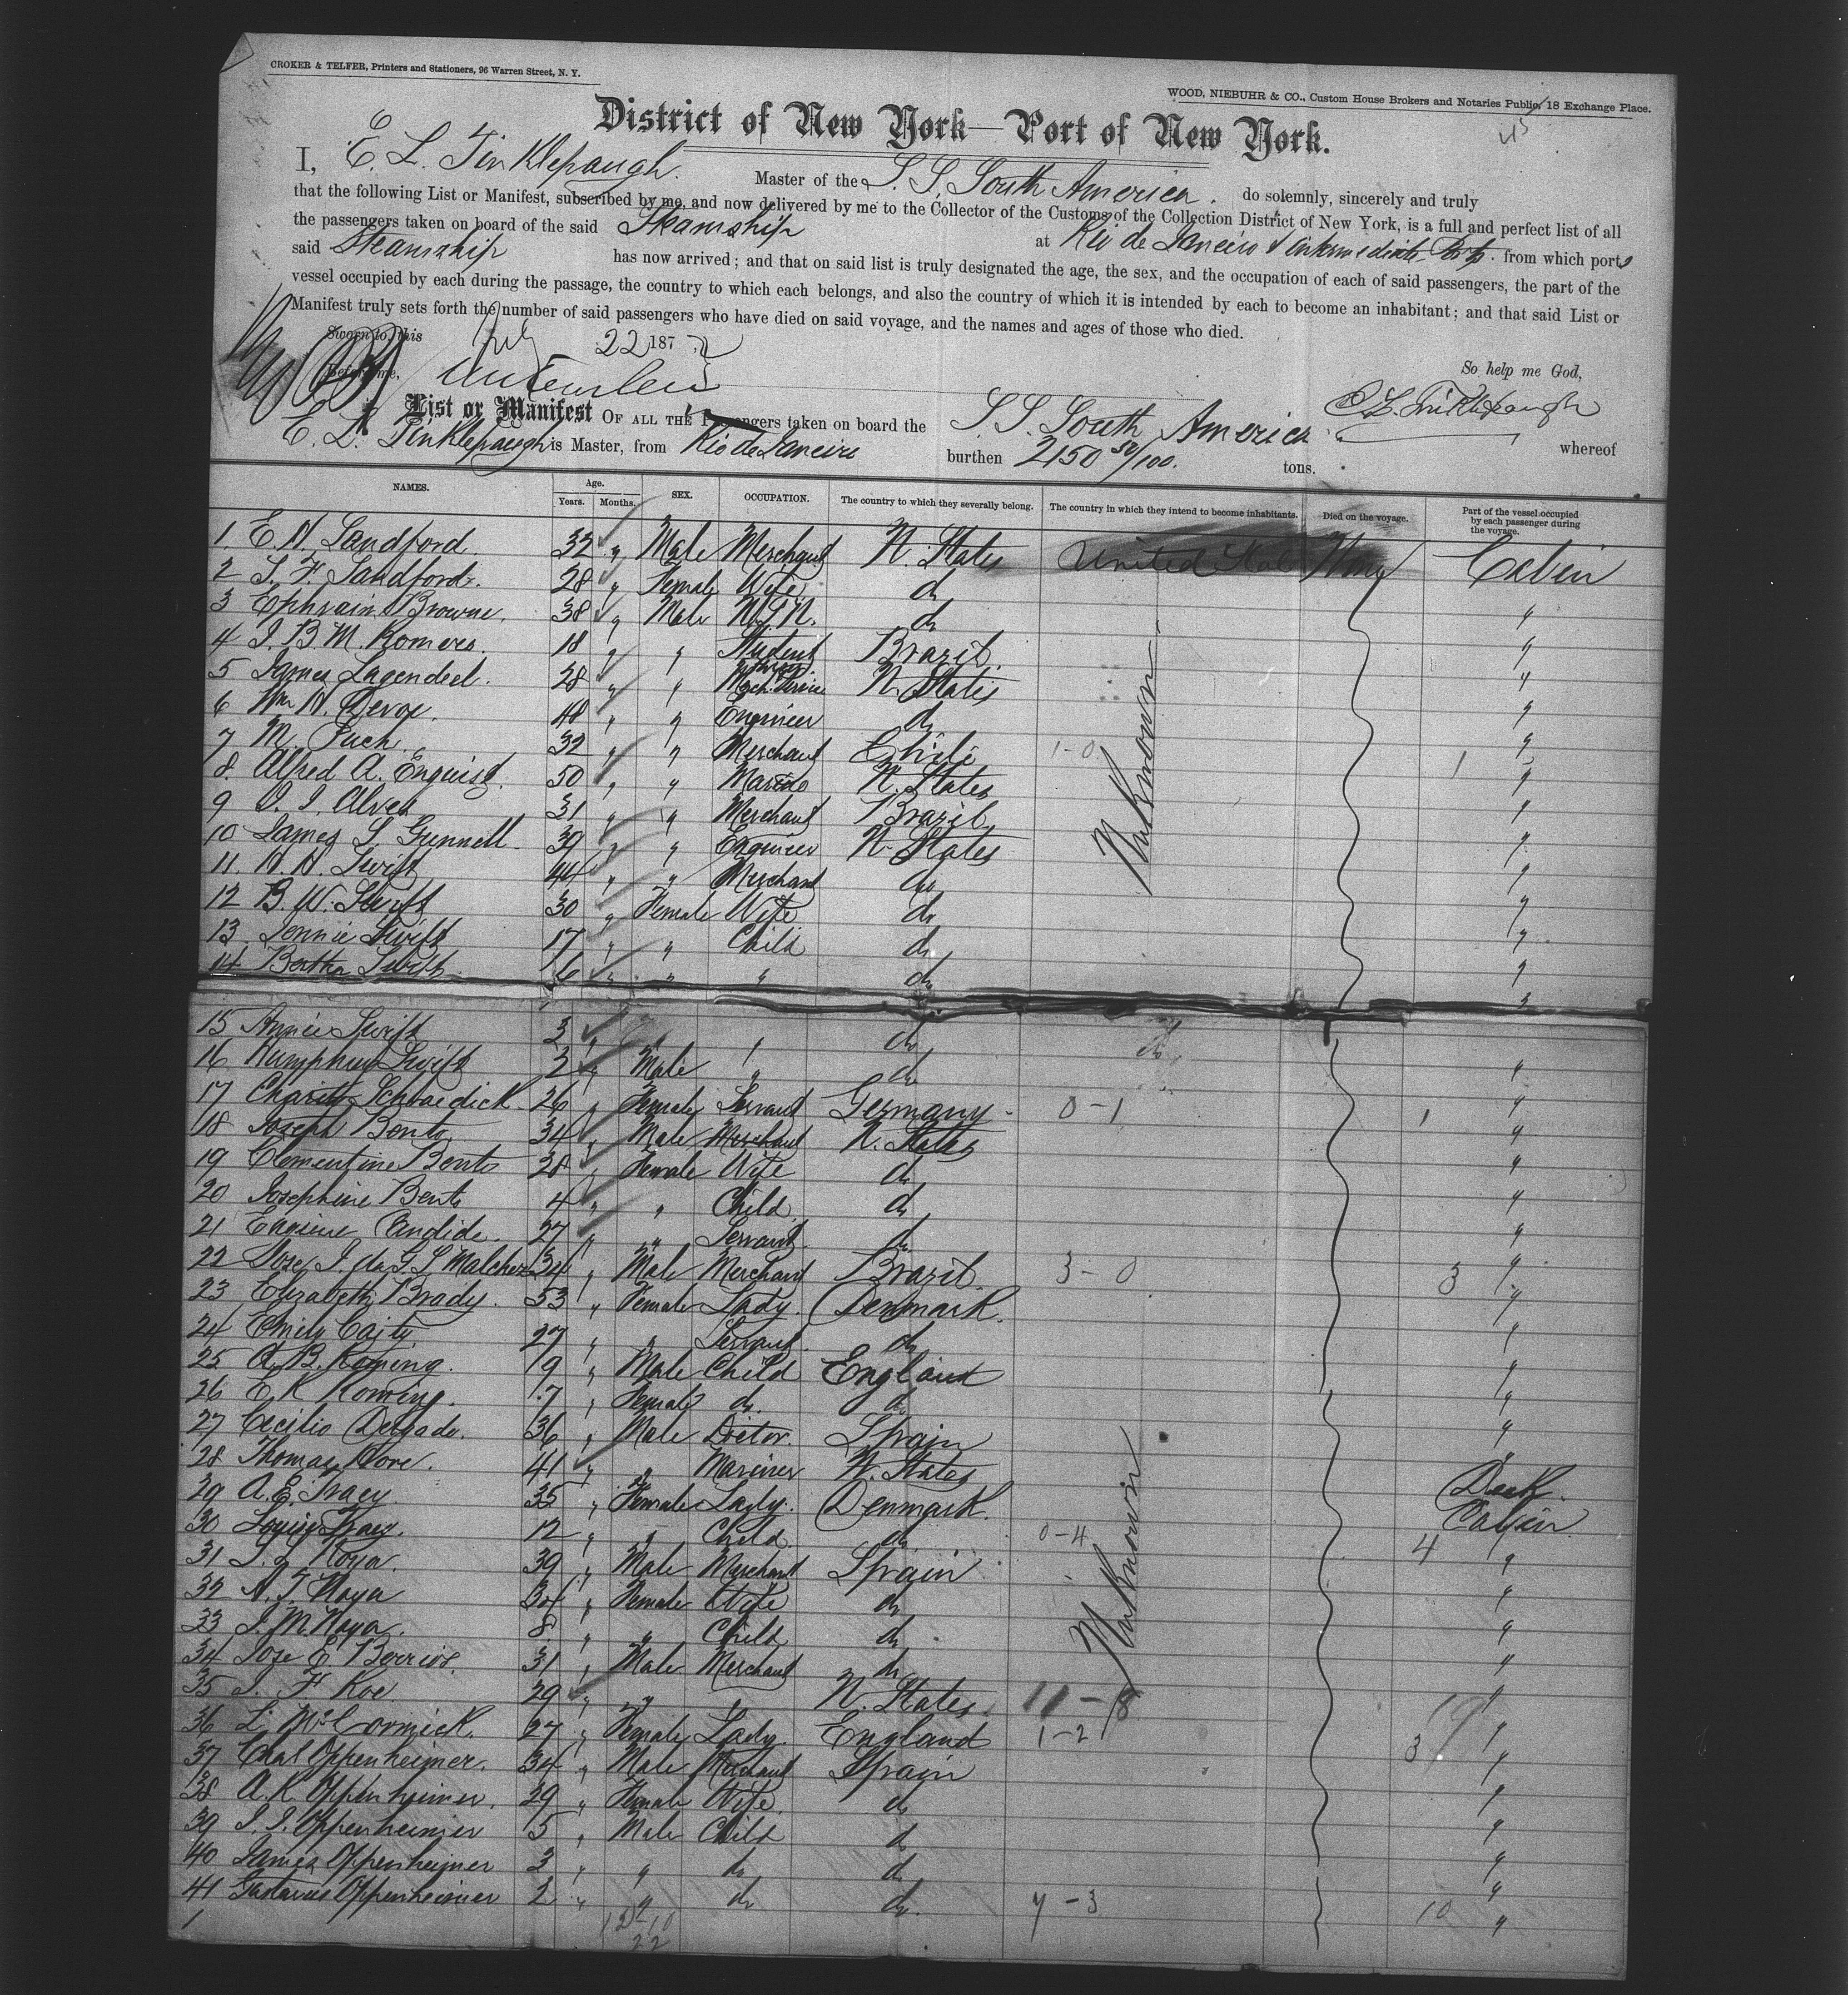 CROKER & TELFER, Printers and Stationers, 96 Warren Street, N. Y.
WOOD, NIEBUHR & CO., Custom House Brokers and Notaries Public, 18 Exchange Place.
District of New York—Port of New York.
I, E. L. Tinklepaugh. Master of the S. S. South America. do solemnly, sincerely and truly
that the following List or Manifest, subscribed by me, and now delivered by me to the Collector of the Customs of the Collection District of New York, is a full and perfect list of all
the passengers taken on board of the said Steamship at Rio de Janeiro & intermediate Ports. from which ports
said Steamship has now arrived; and that on said list is truly designated the age, the sex, and the occupation of each of said passengers, the part of the
vessel occupied by each during the passage, the country to which each belongs, and also the country of which it is intended by each to become an inhabitant; and that said List or
Manifest truly sets forth the number of said passengers who have died on said voyage, and the names and ages of those who died.
Sworn to, this July 22 187
So help me God,
Before me,
E. L. Tinklepaugh
List or Manifest OF ALL THE Passengers taken on board the S. S. South America whereof
E. L. Tinklepaugh is Master, from Rio de Janeiro burthen 2150 50/100. tons.
NAMES. Age. Years. Months. SEX. OCCUPATION. The country to which they severally belong. The country in which they intend to become inhabitants. Died on the voyage. Part of the vessel occupied by each passenger during the voyage.
1 E. H. Sandford 32 " Male Merchant U. States United States Cabin
2 S. F. Sandford. 28 " Female Wife do "
3 Ephraim Browne. 38 " Male U.S.N. do "
4 J. B. M. Romeres. 18 " " Student Brazil "
5 James Lagendeel. 28 " " U. States "
6 Wm H. Devoe. 48 " " Engineer do "
7 M. Puch. 32 " " Merchant Chili 1-0 1 "
8 Alfred A. Enquist. 50 " " U. States "
9 31 " " Merchant Brazil "
10 James S. Gunnell 39 " " Engineer U. States "
11 H. H. Swift 44 " " Merchant do "
12 B. W. Swift 30 " Female Wife do "
13 Jennie Swift 17 " " Child do "
14 Bertha Swift 6 " " " do "
15 Annie Swift 3 " " " do do "
16 Humphrey Swift 2 " Male " do "
17 Charity Schraedick 26 " Female Servant Germany 0-1 1 "
18 Joseph Bento 34 " Male Merchant U. States "
19 Clementine Bento 28 " Female Wife do "
20 Josephine Bento 4 " " Child do "
21 Candide. 27 " " Servant. do "
22 Jose J. da G. S. Malcher 34 " Male Merchant Brazil 3-0 3 "
23 Elizabeth Brady. 53 " Female Lady. Denmark. "
24 Emily 27 " " Servant. do "
25 A. B. Roming. 19 " Male Child England "
26 E. K. Roming. 17 " Female do. do "
27 Cecilio Delgado. 36 " Male Doctor. Spain "
28 Thomas Dore. 41 " " Mariner U. States Deck.
29 A. E. Tracy. 35 " Female Lady. Denmark. Cabin
30 Louise Tracy. 12 " " Child do 0-4 4 "
31 Roya. 39 " Male Merchant Spain "
32 A. T. Naya 34 " Female Wife do "
33 J. M. Naya. 8 " " Child do "
34 Jose E. Berrios. 31 " Male Merchant do "
35 J. F. Roe 29 " " " U. States. 11-8 19 "
36 L. McCormick. 27 " Female Lady. England 1-2 3 "
37 Chas Oppenheimer. 34 " Male Merchant Spain "
38 A. K. Oppenheimer. 29 " Female Wife do "
39 J. S. Oppenheimer 5 " Male Child do "
40 James Oppenheimer 3 " " do do "
41 Gustavus Oppenheimer 2 " " do do. 7-3 10 "
Unknown
Unknown
12-10
22